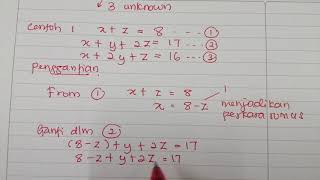 3 unknown
Contoh 1 x + z = 8 .... ①
x + y + 2z = 17 ... ②
x + 2y + z = 16 ... ③
Penggantian
From ① x + z = 8
x = 8 - z menjadikan
perkara rumus
Ganti dlm ②
(8 - z) + y + 2z = 17
8 - z + y + 2z = 17